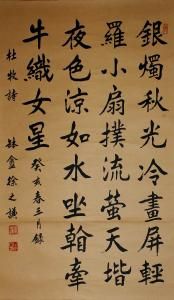 銀燭秋光冷畫屏輕
羅小扇撲流螢天堦
夜色涼如水坐看牽
牛織女星 癸亥春三月錄
杜牧詩 盦徐之